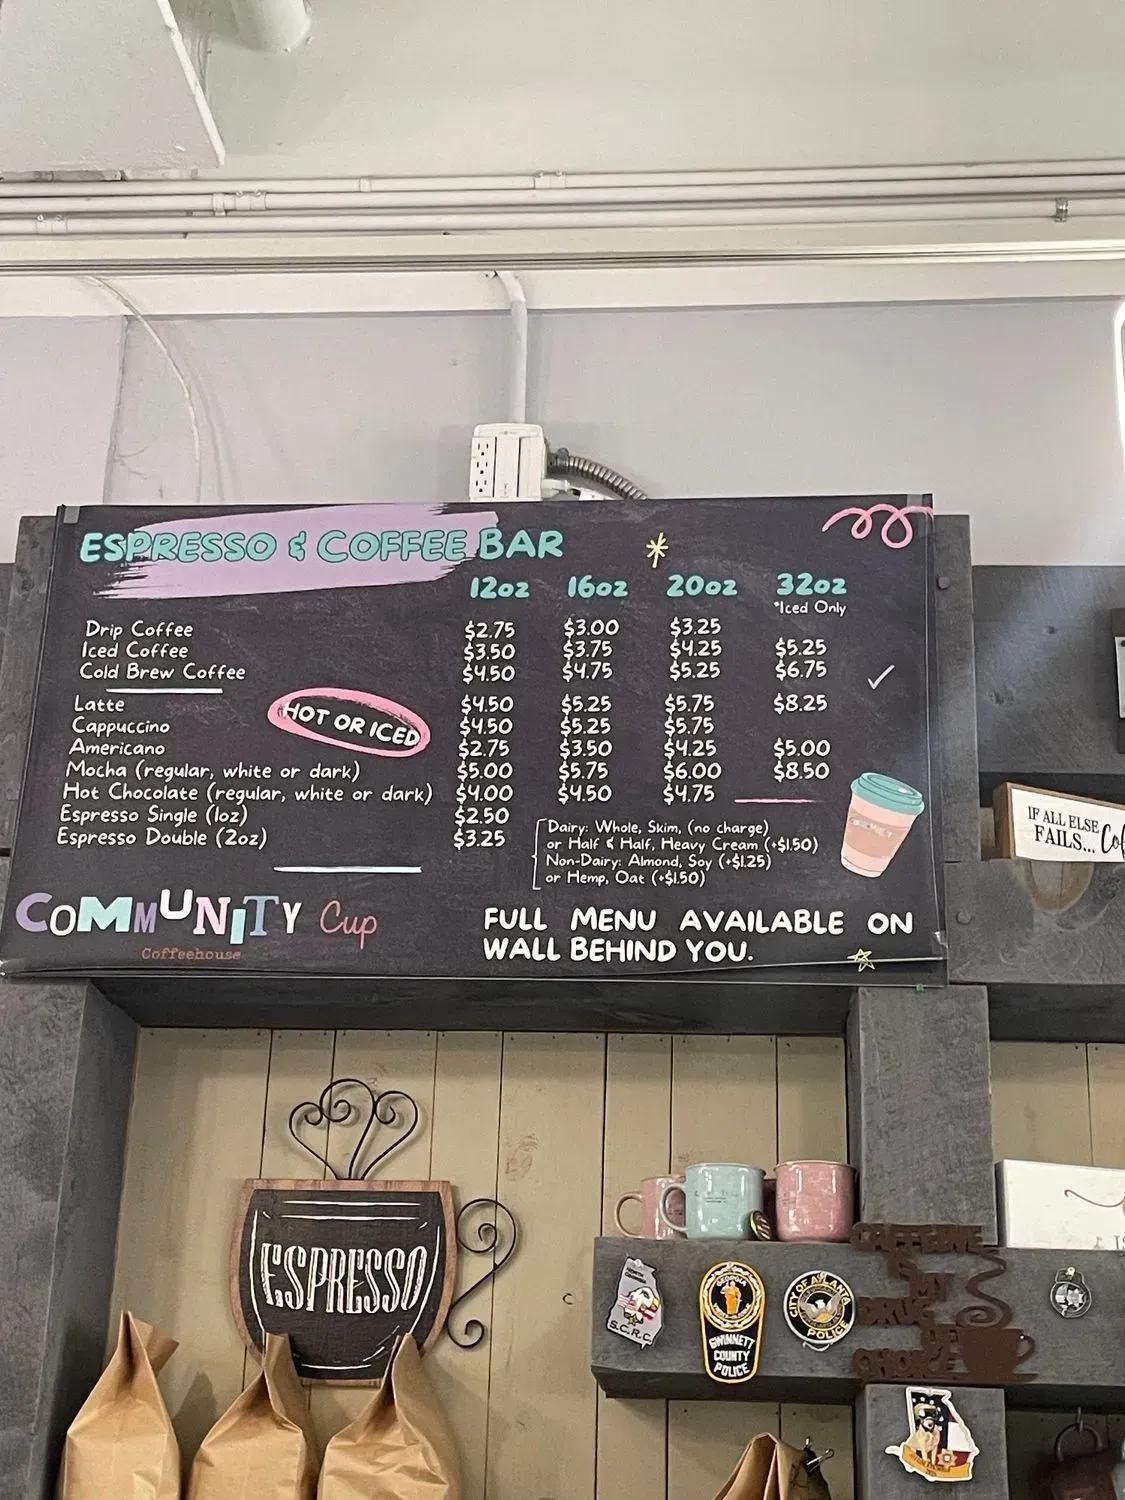 ESPRESSO & COFFEE BAR
12oz 16oz 20oz 32oz
*Iced Only
Drip Coffee $2.75 $3.00 $3.25
Iced Coffee $3.50 $3.75 $4.25 $5.25
Cold Brew Coffee $4.50 $4.75 $5.25 $6.75
Latte $4.50 $5.25 $5.75 $8.25
HOT OR ICED
Cappuccino $4.50 $5.25 $5.75
Americano $2.75 $3.50 $4.25 $5.00
Mocha (regular, white or dark) $5.00 $5.75 $6.00 $8.50
Hot Chocolate (regular, white or dark) $4.00 $4.50 $4.75
Espresso Single (1oz) $2.50
Espresso Double (2oz) $3.25
Dairy: Whole, Skim, (no charge)
or Half & Half, Heavy Cream (+$1.50)
Non-Dairy: Almond, Soy (+$1.25)
or Hemp, Oat (+$1.50)
COMMUNITY Cup
Coffeehouse
FULL MENU AVAILABLE ON
WALL BEHIND YOU.
IF ALL ELSE
FAILS...
ESPRESSO
S.C.R.C.
GEORGIA
GWINNETT
COUNTY
POLICE
CITY OF ATLANTA
POLICE
CAFFEINE
IS
MY
DRUG
OF
CHOICE